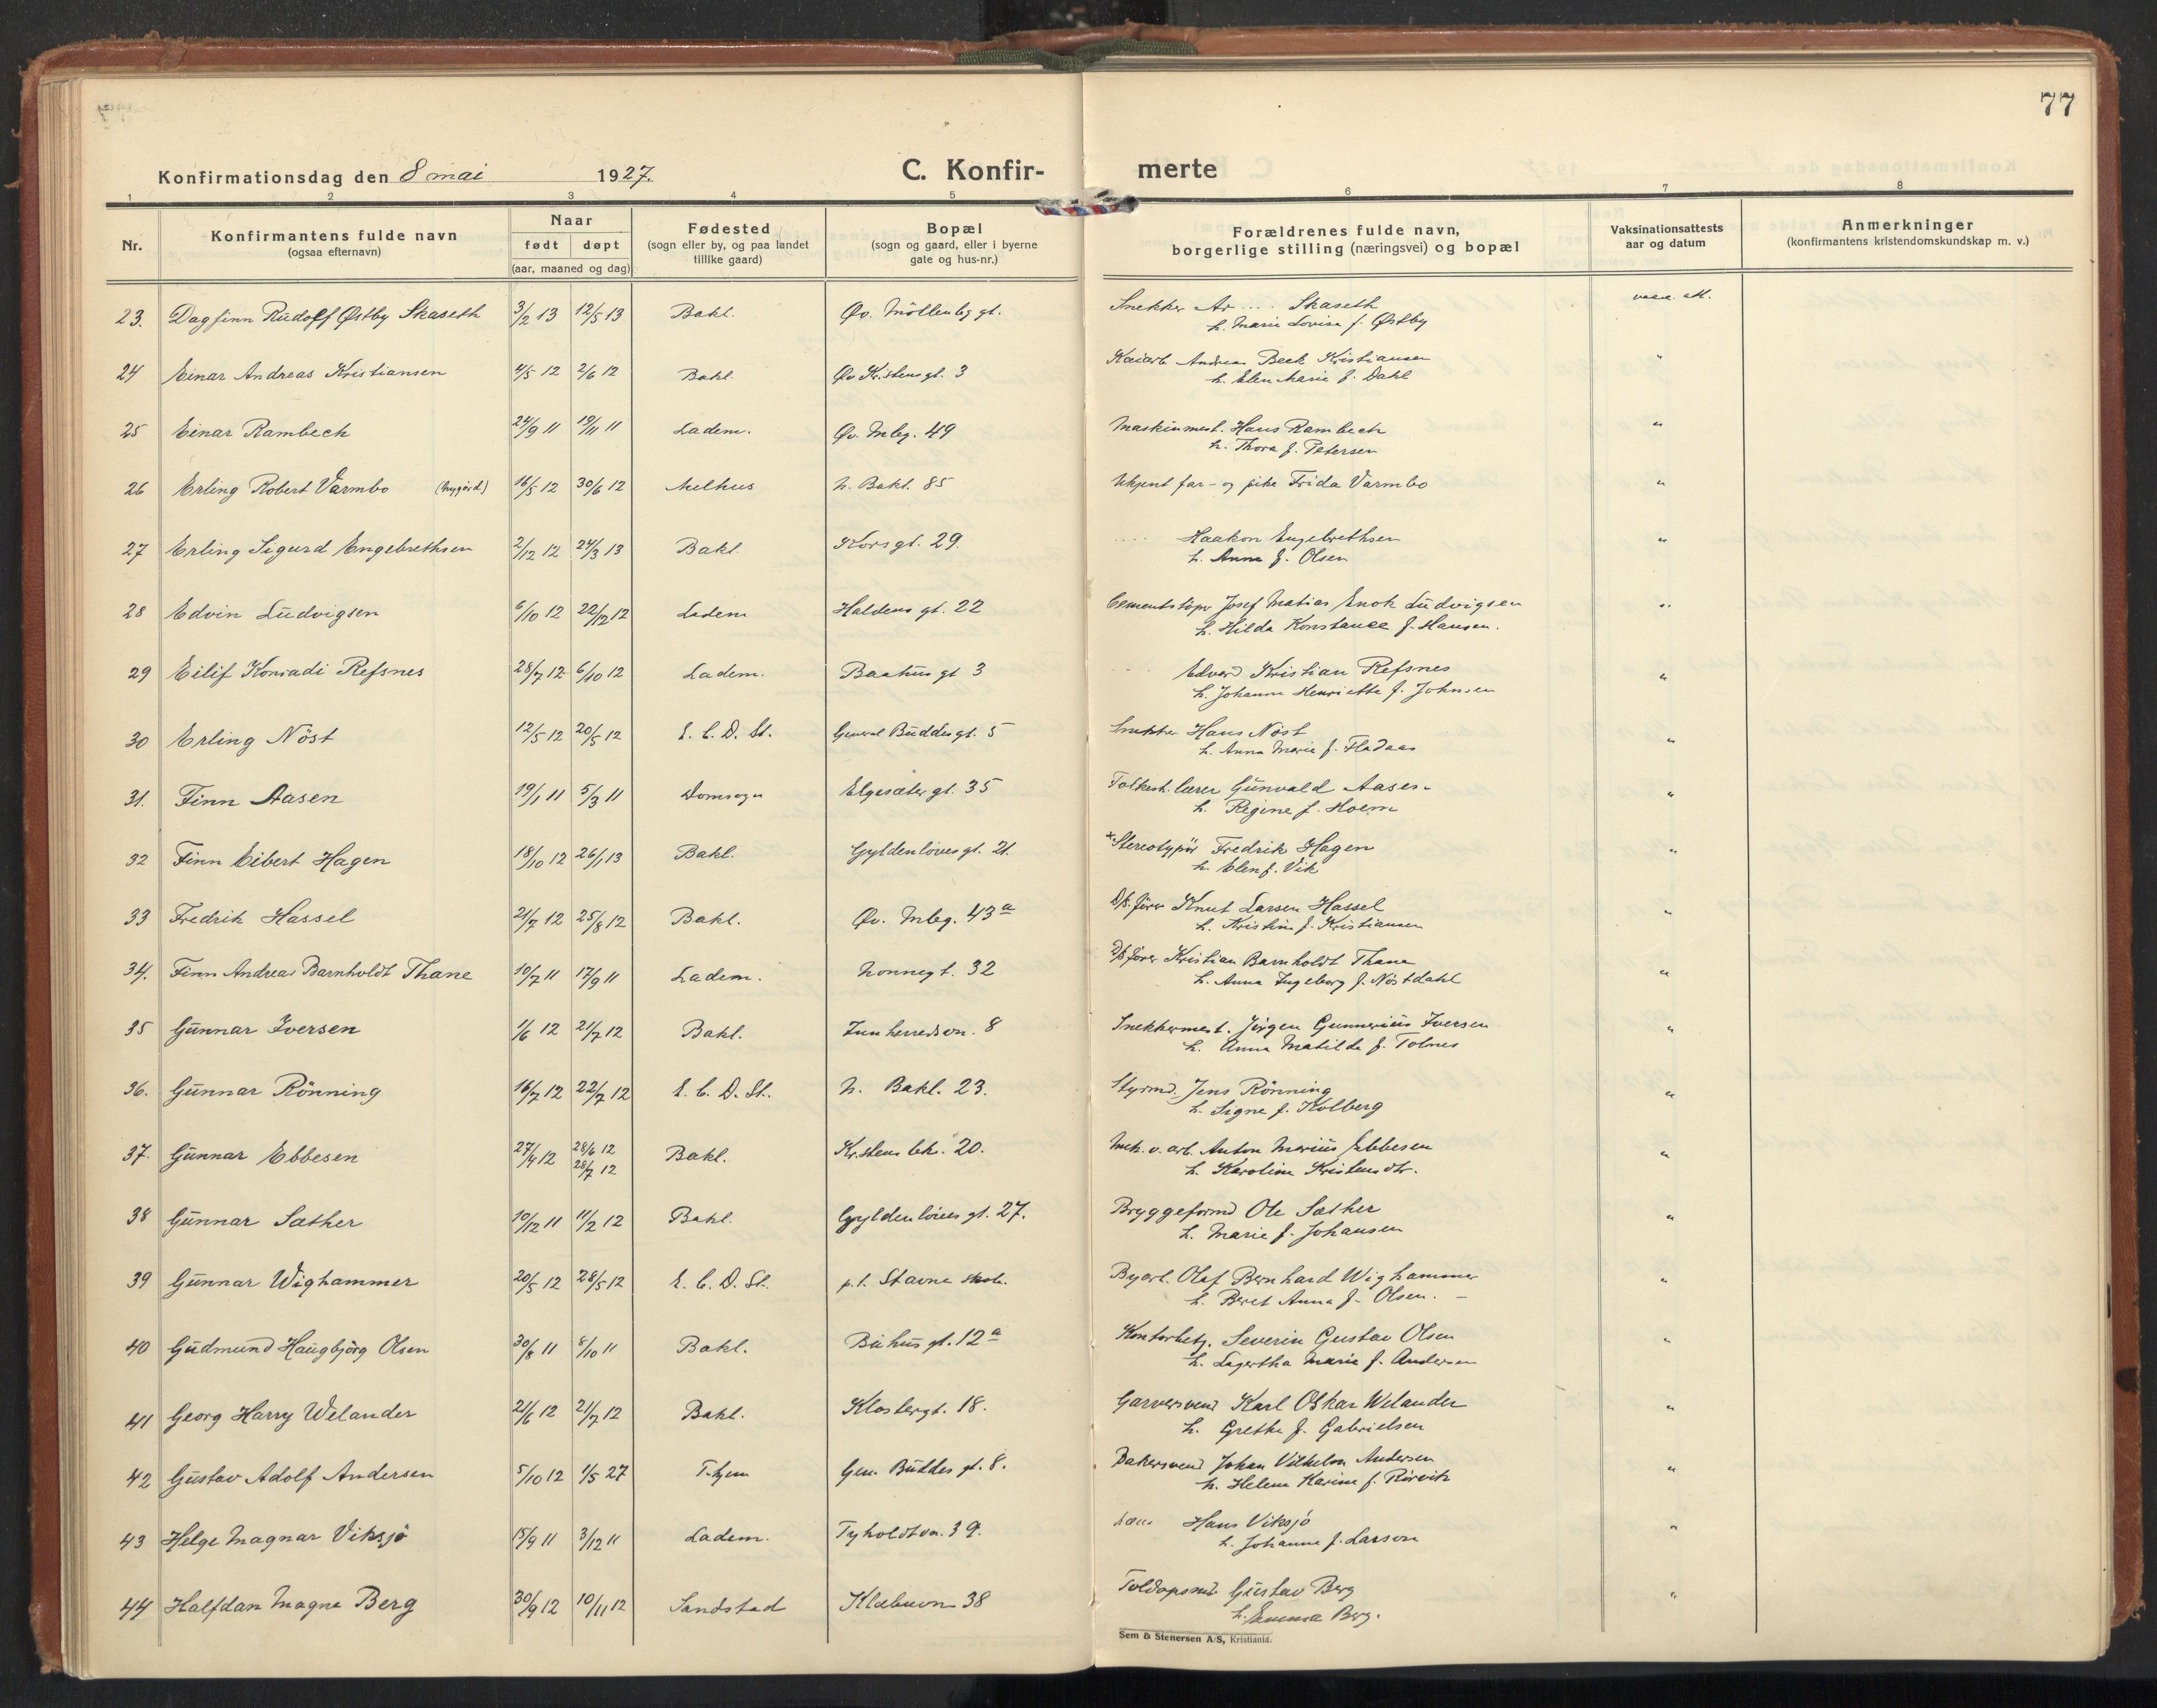 77
Konfirmationsdag den 8 mai 1927.
C. Konfir-
merte
1 2 3 4 5 6 7 8
Nr.
Konfirmantens fulde navn
(ogsaa efternavn)
Naar
født døpt
(aar, maaned og dag)
Fødested
(sogn eller by, og paa landet
tillike gaard)
Bopæl
(sogn og gaard, eller i byerne
gate og hus-nr.)
Forældrenes fulde navn,
borgerlige stilling (næringsvei) og bopæl
Vaksinationsattests
aar og datum
Anmerkninger
(konfirmantens kristendomskundskap m. v.)
23. Dagfinn Rudolf Østby Skaseth 3/2 13 12/5 13 Bakl. Øv. Möllenbg gt. Snekker Ar .... Skaseth vacc. att.
h. Marie Lovise f. Østby
24 Einar Andreas Kristiansen 4/5 12 2/6 12 Bakl. Øv Kristensgt. 3 Kaiarb. Andreas Beck Kristiansen "
h. Elen Marie f. Dahl
25 Einar Rambech 24/9 11 19/11 11 Ladem. Øv. Mbg. 49 Maskinmest. Hans Rambech "
h. Thora f. Petersen
26 Erling Robert Varmbo 16/5 12 30/6 12 Melhus N. Bakl. 85 Ukjent far - og pike Frida Varmbo "
27 Erling Sigurd Engebrethsen 2/12 12 24/3 13 Bakl. Korsgt. 29. .... Haakon Engebrethsen "
h. Anna f. Olsen
28 Edvin Ludvigsen 6/10 12 22/12 12 Ladem Haldens gt. 22 Cementstöper Josef Matias Enok Ludvigsen "
h. Hilda Konstance f. Hansen.
29 Eilif Konradi Refsnes 28/7 12 6/10 12 Ladem. Baahus gt 3 .... Edvard Kristian Refsnes "
h. Johanne Henriette f. Johnsen
30 Erling Nöst 12/5 12 20/5 12 E. C. D. St. General Buddesgt. 5 Snekker Hans Nöst "
h. Anna Marie f. Fladaas
31. Finn Aasen 19/1 11 5/3 11 Domsogn Elgesæter gt. 35 Folkesk.lærer Gunvald Aasen "
h. Regine f. Holm
32 Finn Eibert Hagen 18/10 12 26/1 13 Bakl. Gyldenlövesgt. 21. x Stereotypör Fredrik Hagen "
h. Elen f. Vik
33 Fredrik Hassel 21/7 12 25/8 12 Bakl. Øv. Mbg. 43 a D/S. förer Knut Larsen Hassel "
h. Kristine f. Kristiansen
34. Finn Andreas Barnholdt Thane 10/7 11 17/9 11 Ladem. Nonnegt. 32 D/S förer Kristian Barnholdt Thane "
h. Anna Ingeborg f. Nöstdahl
35 Gunnar Iversen 1/6 12 21/7 12 Bakl. Innherredsvn. 8 Snekkermest. Jörgen Gunnerius Iversen "
h. Anna Matilde f. Tolnes
36. Gunnar Rönning 16/7 12 22/7 12 E. C. D. St. N. Bakl. 23. Styrmd. Jens Rönning "
h. Signe f. Kolberg
37. Gunnar Ebbesen 27/4 12 28/6 12 Bakl. Kr.stens bk. 20. Mek. v. arb. Anton Marius Ebbesen "
28/7 12 h. Karoline Kristensdtr.
38 Gunnar Sæther 10/12 11 11/2 12 Bakl. Gyldenlöves gt. 27. Bryggeformd Ole Sæther "
h. Marie f. Johansen
39 Gunnar Wighammer 20/5 12 28/5 12 E. C. D. St. p.t. Stavne skole. Byarb. Olaf Bernhard Wighammer "
h. Beret Anna f. Olsen.
40 Gudmund Haugbjörg Olsen 30/8 11 8/10 11 Bakl. Bühus gt. 12 a Kontorbetj. Severin Gustav Olsen "
h. Lagertha Marie f. Andersen
41 Georg Harry Welander 21/6 12 21/7 12 Bakl. Klostergt. 18. Garversvend Karl Oskar Welander "
h. Grethe f. Gabrielsen
42 Gustav Adolf Andersen 5/10 12 1/5 27 T.hjem Gen. Buddes gt. 8. Bakersvend Johan Vilhelm Andersen "
h. Helene Karine f. Rörvik
43 Helge Magnar Viksjö 15/9 11 3/12 11 Ladem. Tyholdtvn. 39. Hans Viksjö "
h. Johanne f. Larsen
44 Halfdan Magne Berg 30/9 12 10/11 12 Sandstad Klæbuvn 38 Toldopsmd. Gustav Berg "
h. Emma Berg.
Sem & Stenersen A/S, Kristiania.